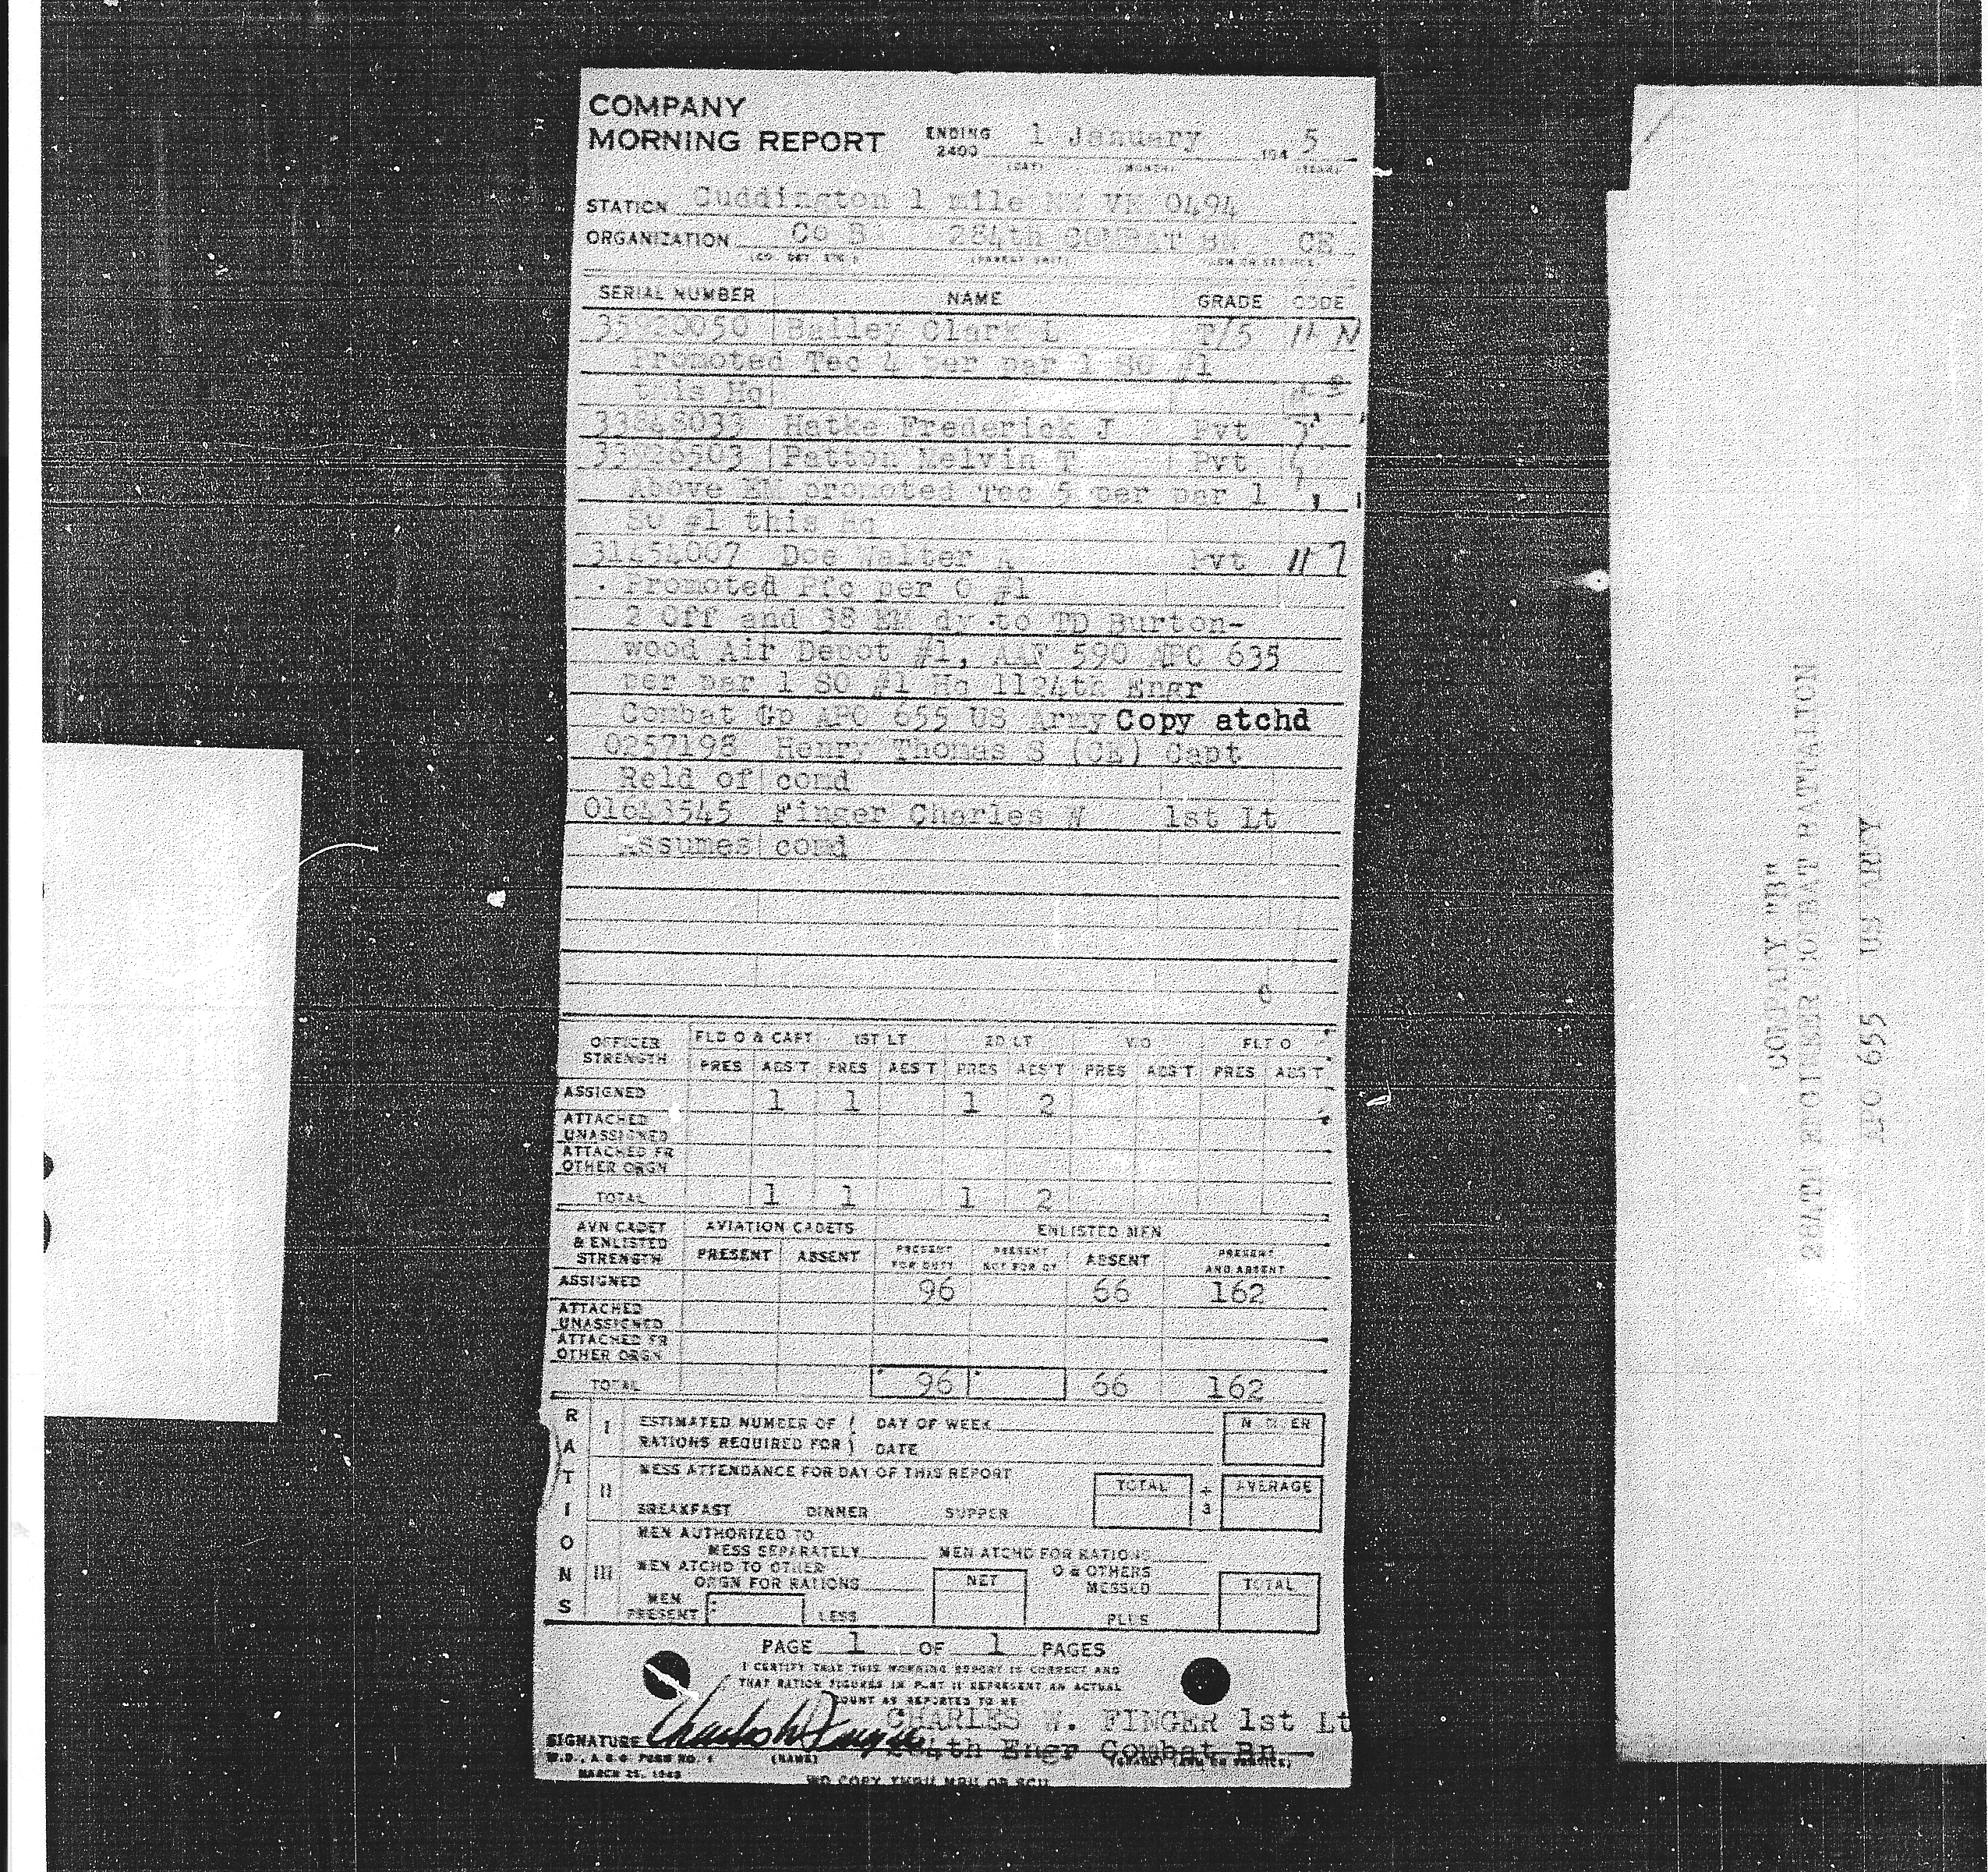 COMPANY
MORNING REPORT ENDING 2400 1 January 194 5
(DAY) (MONTH) (YEAR)
STATION Cuddington 1 mile NW VR 0494
ORGANIZATION Co B 284th COMBAT BN CE
(CO. DET. ETC.) (PARENT UNIT) ARM OR SERVICE
SERIAL NUMBER NAME GRADE CODE
35920050 Bailey Clark L T/5
Promoted Tec 4 per par 1 SO #1
this Hq
33848033 Hatke Frederick J Pvt
33926503 Patton Melvin T Pvt
Above EM promoted Tec 5 per par 1
SO #1 this Hq
31454007 Doe Walter A Pvt
Promoted Pfc per O #1
2 Off and 38 EM dy to TD Burton-
wood Air Depot #1, AAF 590 APO 635
per par 1 SO #1 Hq 1124th Engr
Combat Gp APO 655 US Army Copy atchd
0257198 Henry Thomas S (CE) Capt
Reld of comd
01643545 Finger Charles W 1st Lt
Assumes comd
OFFICER STRENGTH FLD O & CAPT 1ST LT 2D LT W O FLT O
PRES ABS'T PRES ABS'T PRES ABS'T PRES ABS'T PRES ABS'T
ASSIGNED 1 1 1 2
ATTACHED UNASSIGNED
ATTACHED FR OTHER ORGN
TOTAL 1 1 1 2
AVN CADET & ENLISTED STRENGTH AVIATION CADETS ENLISTED MEN
PRESENT ABSENT PRESENT FOR DUTY PRESENT NOT FOR DY ABSENT PRESENT AND ABSENT
ASSIGNED 96 66 162
ATTACHED UNASSIGNED
ATTACHED FR OTHER ORGN
TOTAL 96 66 162
RATIONS
I ESTIMATED NUMBER OF RATIONS REQUIRED FOR DAY OF WEEK NUMBER
DATE
II MESS ATTENDANCE FOR DAY OF THIS REPORT TOTAL ÷ 3 AVERAGE
BREAKFAST DINNER SUPPER
III MEN AUTHORIZED TO
MESS SEPARATELY MEN ATCHD FOR RATIONS
MEN ATCHD TO OTHER ORGN FOR RATIONS NET O & OTHERS MESSED TOTAL
MEN PRESENT LESS PLUS
PAGE 1 OF 1 PAGES
I CERTIFY THAT THIS MORNING REPORT IS CORRECT AND
THAT RATION FIGURES IN PART II REPRESENT AN ACTUAL
COUNT AS REPORTED TO ME
CHARLES W. FINGER 1st Lt
SIGNATURE Charles W Finger 284th Engr Combat Bn
W.D., A.G.O. FORM NO. 1 (NAME) (GRADE) (ARM OR SERVICE)
MARCH 25, 1943
WD COPY THRU MRU OR SCU
COMPANY "B"
284TH ENGINEER COMBAT BATTALION
APO 655 US ARMY